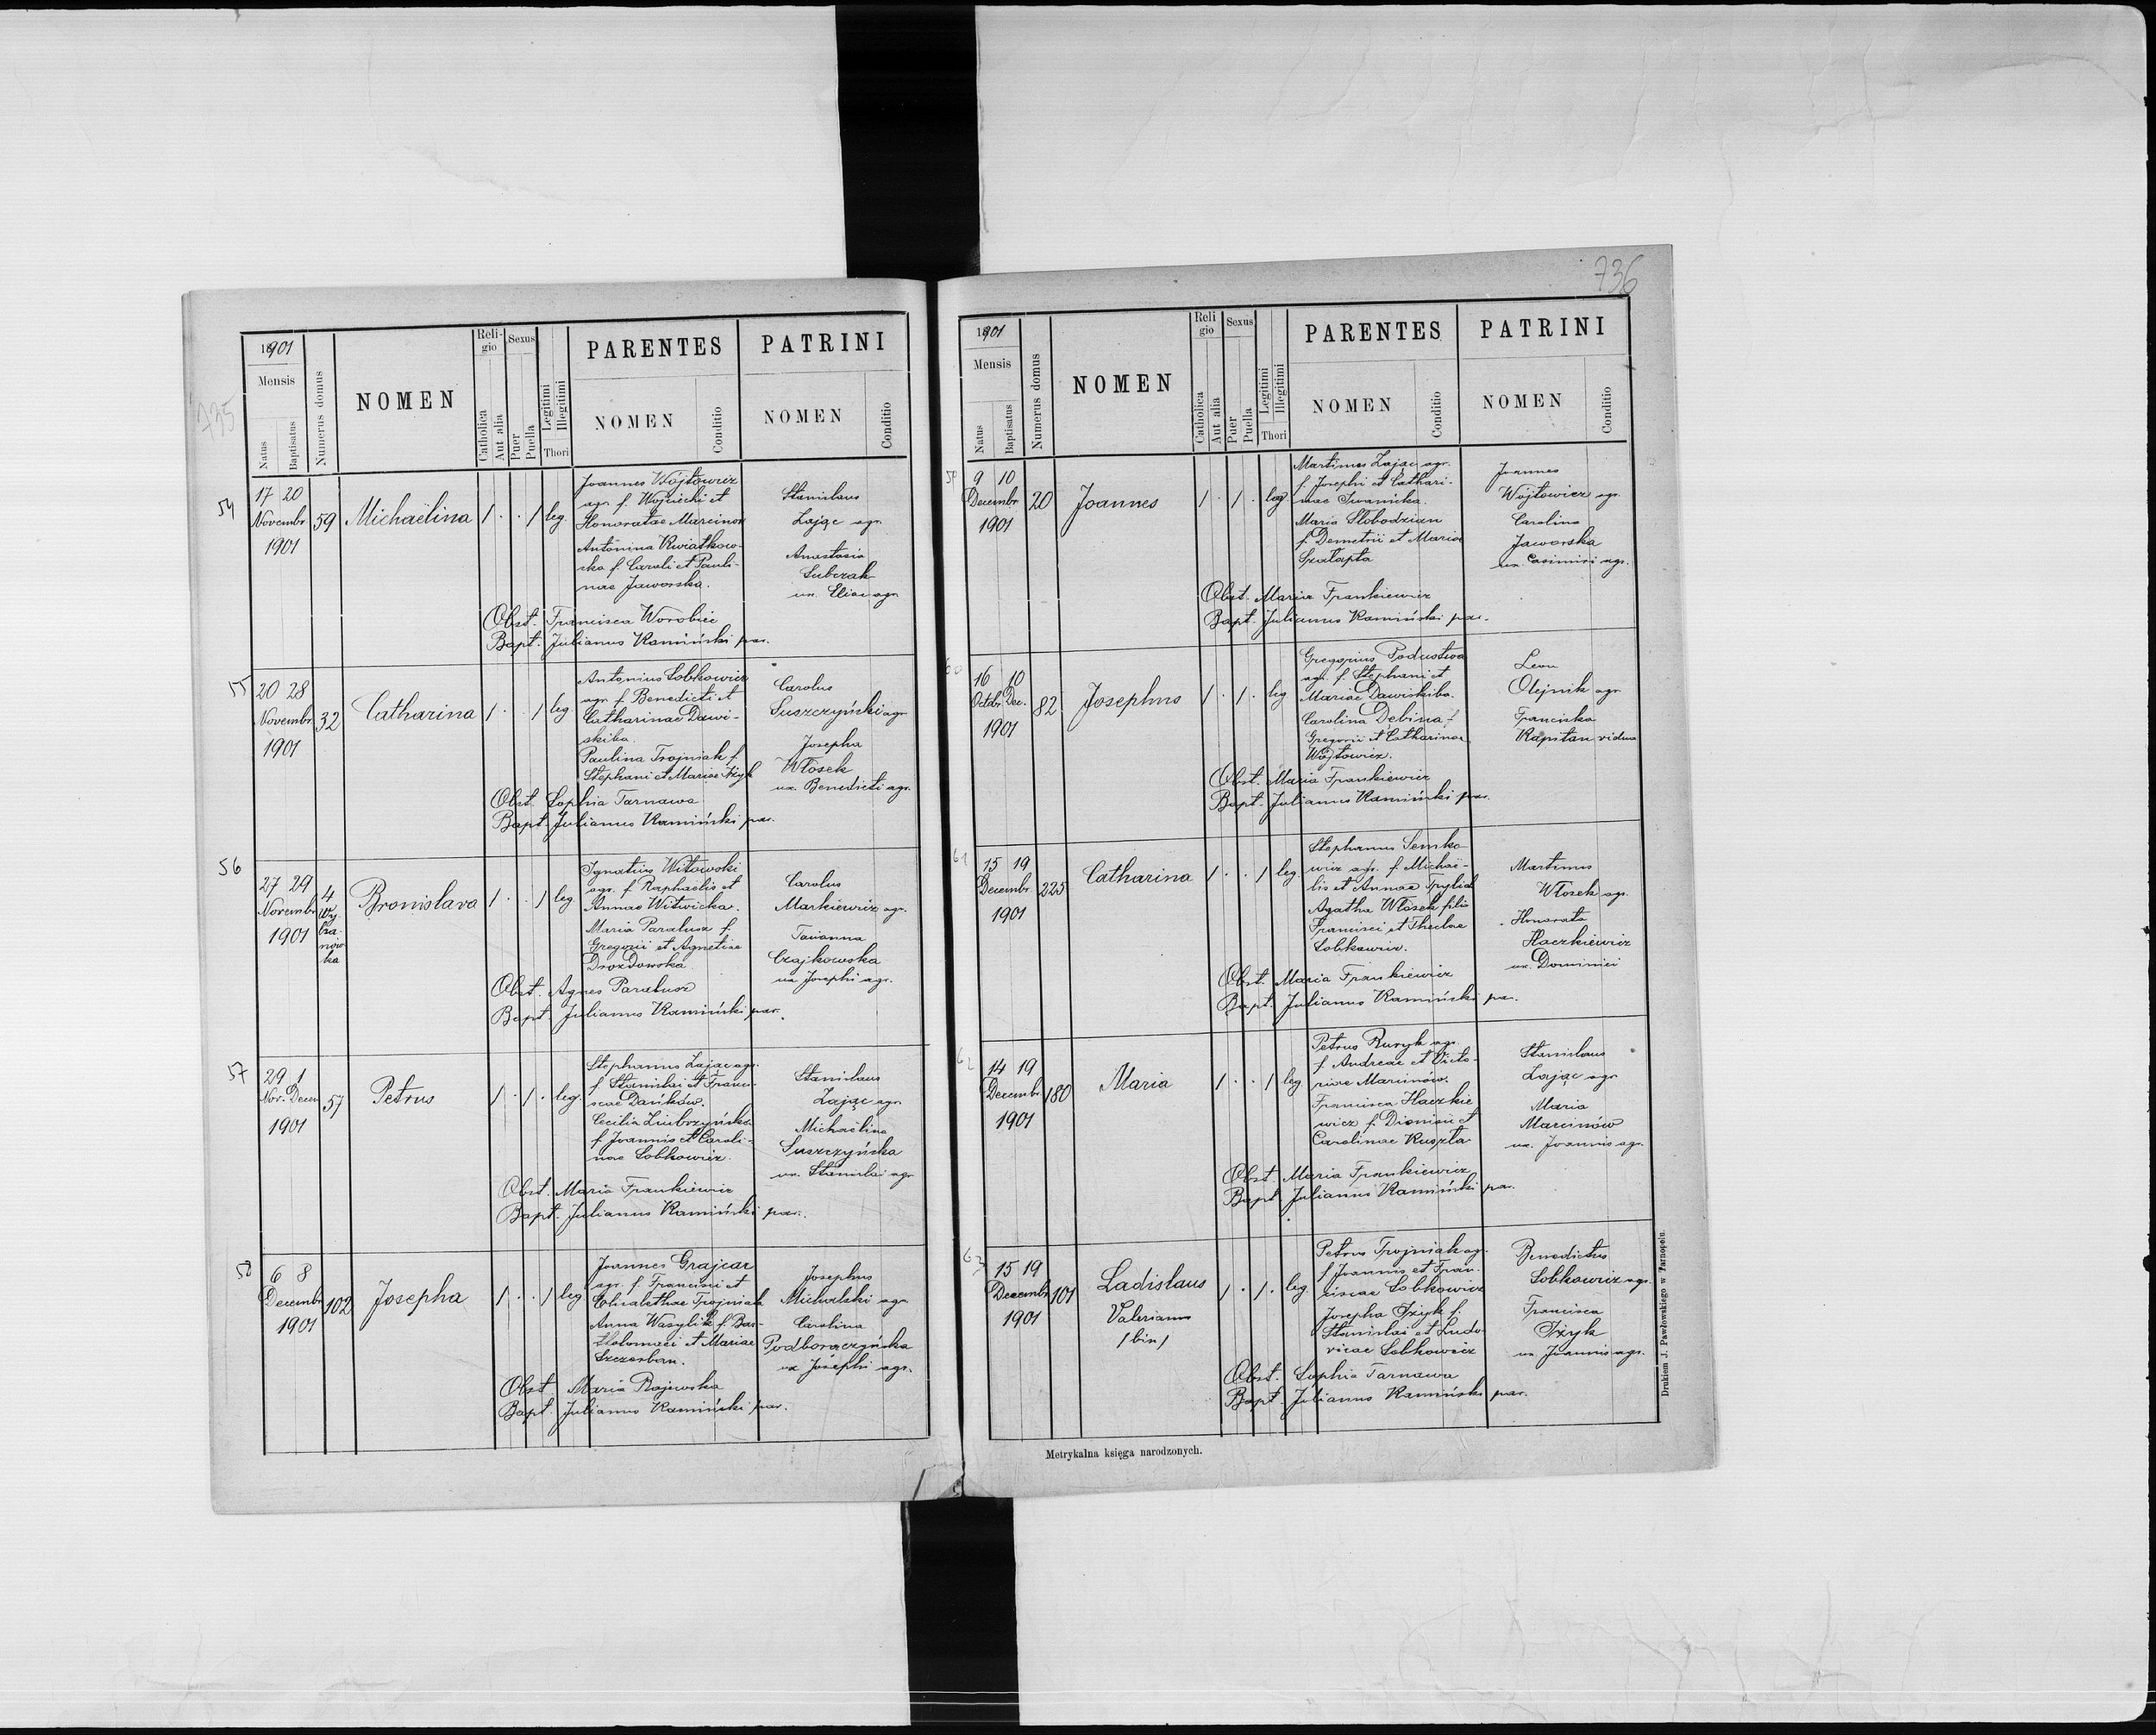 735
1901
Mensis
Natus
Baptisatus
Numerus domus
NOMEN
Reli-
gio
Catholica
Aut alia
Sexus
Puer
Puella
Legitimi
Illegitimi
Thori
PARENTES
NOMEN
Conditio
PATRINI
NOMEN
Conditio
54
17 20
Novembr.
1901
59
Michaëlina
1 . . 1 leg.
Joannes Wójtowicz
agr. f. Wojciechi et
Honoratae Marcinów
Antonina Kwiatkow-
ska f. Caroli et Pauli-
nae Jaworska.
Stanislaus
Zając agr.
Anastasia
Lubczak
ux. Eliae agr.
Obst. Francisca Worobiec
Bapt. Julianus Kamiński par.
55
20 28
Novembr.
1901
32
Catharina
1 . . 1 leg.
Antonius Sobkowicz
agr. f. Benedicti et
Catharinae Dawi-
skiba.
Paulina Trojniak f.
Stephani et Mariae Iżyk
Carolus
Suszczyński agr.
Josepha
Włosek
ux. Benedicti agr.
Obst. Sophia Tarnawa
Bapt. Julianus Kamiński par.
56
27 29
Novembr.
1901
4
Bronislava
1 . . 1 leg.
Ignatius Witowski
agr. f. Raphaelis et
Annae Witwicka.
Maria Paralusz f.
Gregorii et Agnetise
Drozdowska
Carolus
Markiewicz agr.
Tacianna
Czajkowska
ux. Josephi agr.
Obst. Agnes Paralusz
Bapt. Julianus Kamiński par.
57
29 1
Nov. Decem
1901
57
Petrus
1 . 1 . leg.
Stephanus Zając agr.
f. Stanislai et Franci-
scae Dańków.
Cecilia
f. Joannis et Caroli-
nae Sobkowicz.
Stanislaus
Zając agr.
Michaëlina
Suszczyńska
ux. Stanislai agr.
Obst. Maria Frankiewicz
Bapt. Julianus Kamiński par.
58
6 8
Decembr.
1901
102
Josepha
1 . . 1 leg.
Joannes Grajcar
agr. f. Francisci et
Elisabethae Trojniak
Anna Wasylik f. Bar-
tholomaei et Mariae
Szczerban.
Josephus
Michalski agr.
Carolina
Podboraczyńska
ux. Josephi agr.
Obst. Maria Rajewska
Bapt. Julianus Kamiński par.
736
1901
Mensis
Natus
Baptisatus
Numerus domus
NOMEN
Reli
gio
Catholica
Aut alia
Sexus
Puer
Puella
Legitimi
Illegitimi
Thori
PARENTES
NOMEN
Conditio
PATRINI
NOMEN
Conditio
9 10
Decembr.
1901
20
Joannes
1 . 1 . leg.
Martinus Zając agr.
f. Josephi et Cathari-
nae Iwanicka.
Maria Slobodzian
f. Demetrii et Mariae
Szałapta
Joannes
Wójtowicz agr.
Carolina
Jaworska
ux. Casimiri agr.
Obst. Maria Frankiewicz
Bapt. Julianus Kamiński par.
60
16 10
Octobr. Dec.
1901
82
Josephus
1 . 1 . leg.
Gregorius Podustwa
agr. f. Stephani et
Mariae Dawiskiba.
Carolina Dębina f.
Gregorii et Catharinae
Wójtowicz.
Leon
Olejnik agr.
Franciska
Kapitan vidua
Obst. Maria Frankiewicz
Bapt. Julianus Kamiński par.
61
15 19
Decembr.
1901
225
Catharina
1 . . 1 leg.
Stephanus Semko-
wicz agr. f. Michaë-
lis et Annae
Agatha Włosek filia
Francisci et Theclae
Sobkowicz.
Martinus
Włosek agr.
Honorata
Haczkiewicz
ux. Dominici
Obst. Maria Frankiewicz
Bapt. Julianus Kamiński par.
62
14 19
Decembr.
1901
180
Maria
1 . . 1 leg.
Petrus Ruryk agr.
f. Andreae et Victo-
riae Marcinów.
Francisca Haczkie
wicz f. Dionisii et
Carolinae Kuszta
Stanislaus
Zając agr.
Maria
Marcinów
ux. Joannis agr.
Obst. Maria Frankiewicz
Bapt. Julianus Kamiński par.
63
15 19
Decembr.
1901
101
Ladislaus
Valerianus
/bin/
1 . 1 . leg.
Petrus Trojniak agr.
f. Joannis et Fran-
ciscae Sobkowicz
Josepha Iżyk f.
Stanislai et Ludo-
vicae Sobkowicz
Benedictus
Sobkowicz agr.
Francisca
Iżyk
ux. Joannis agr.
Obst. Sophia Tarnawa
Bapt. Julianus Kamiński par.
Metrykalna księga narodzonych.
Drukiem J. Pawłowskiego w Tarnopolu.